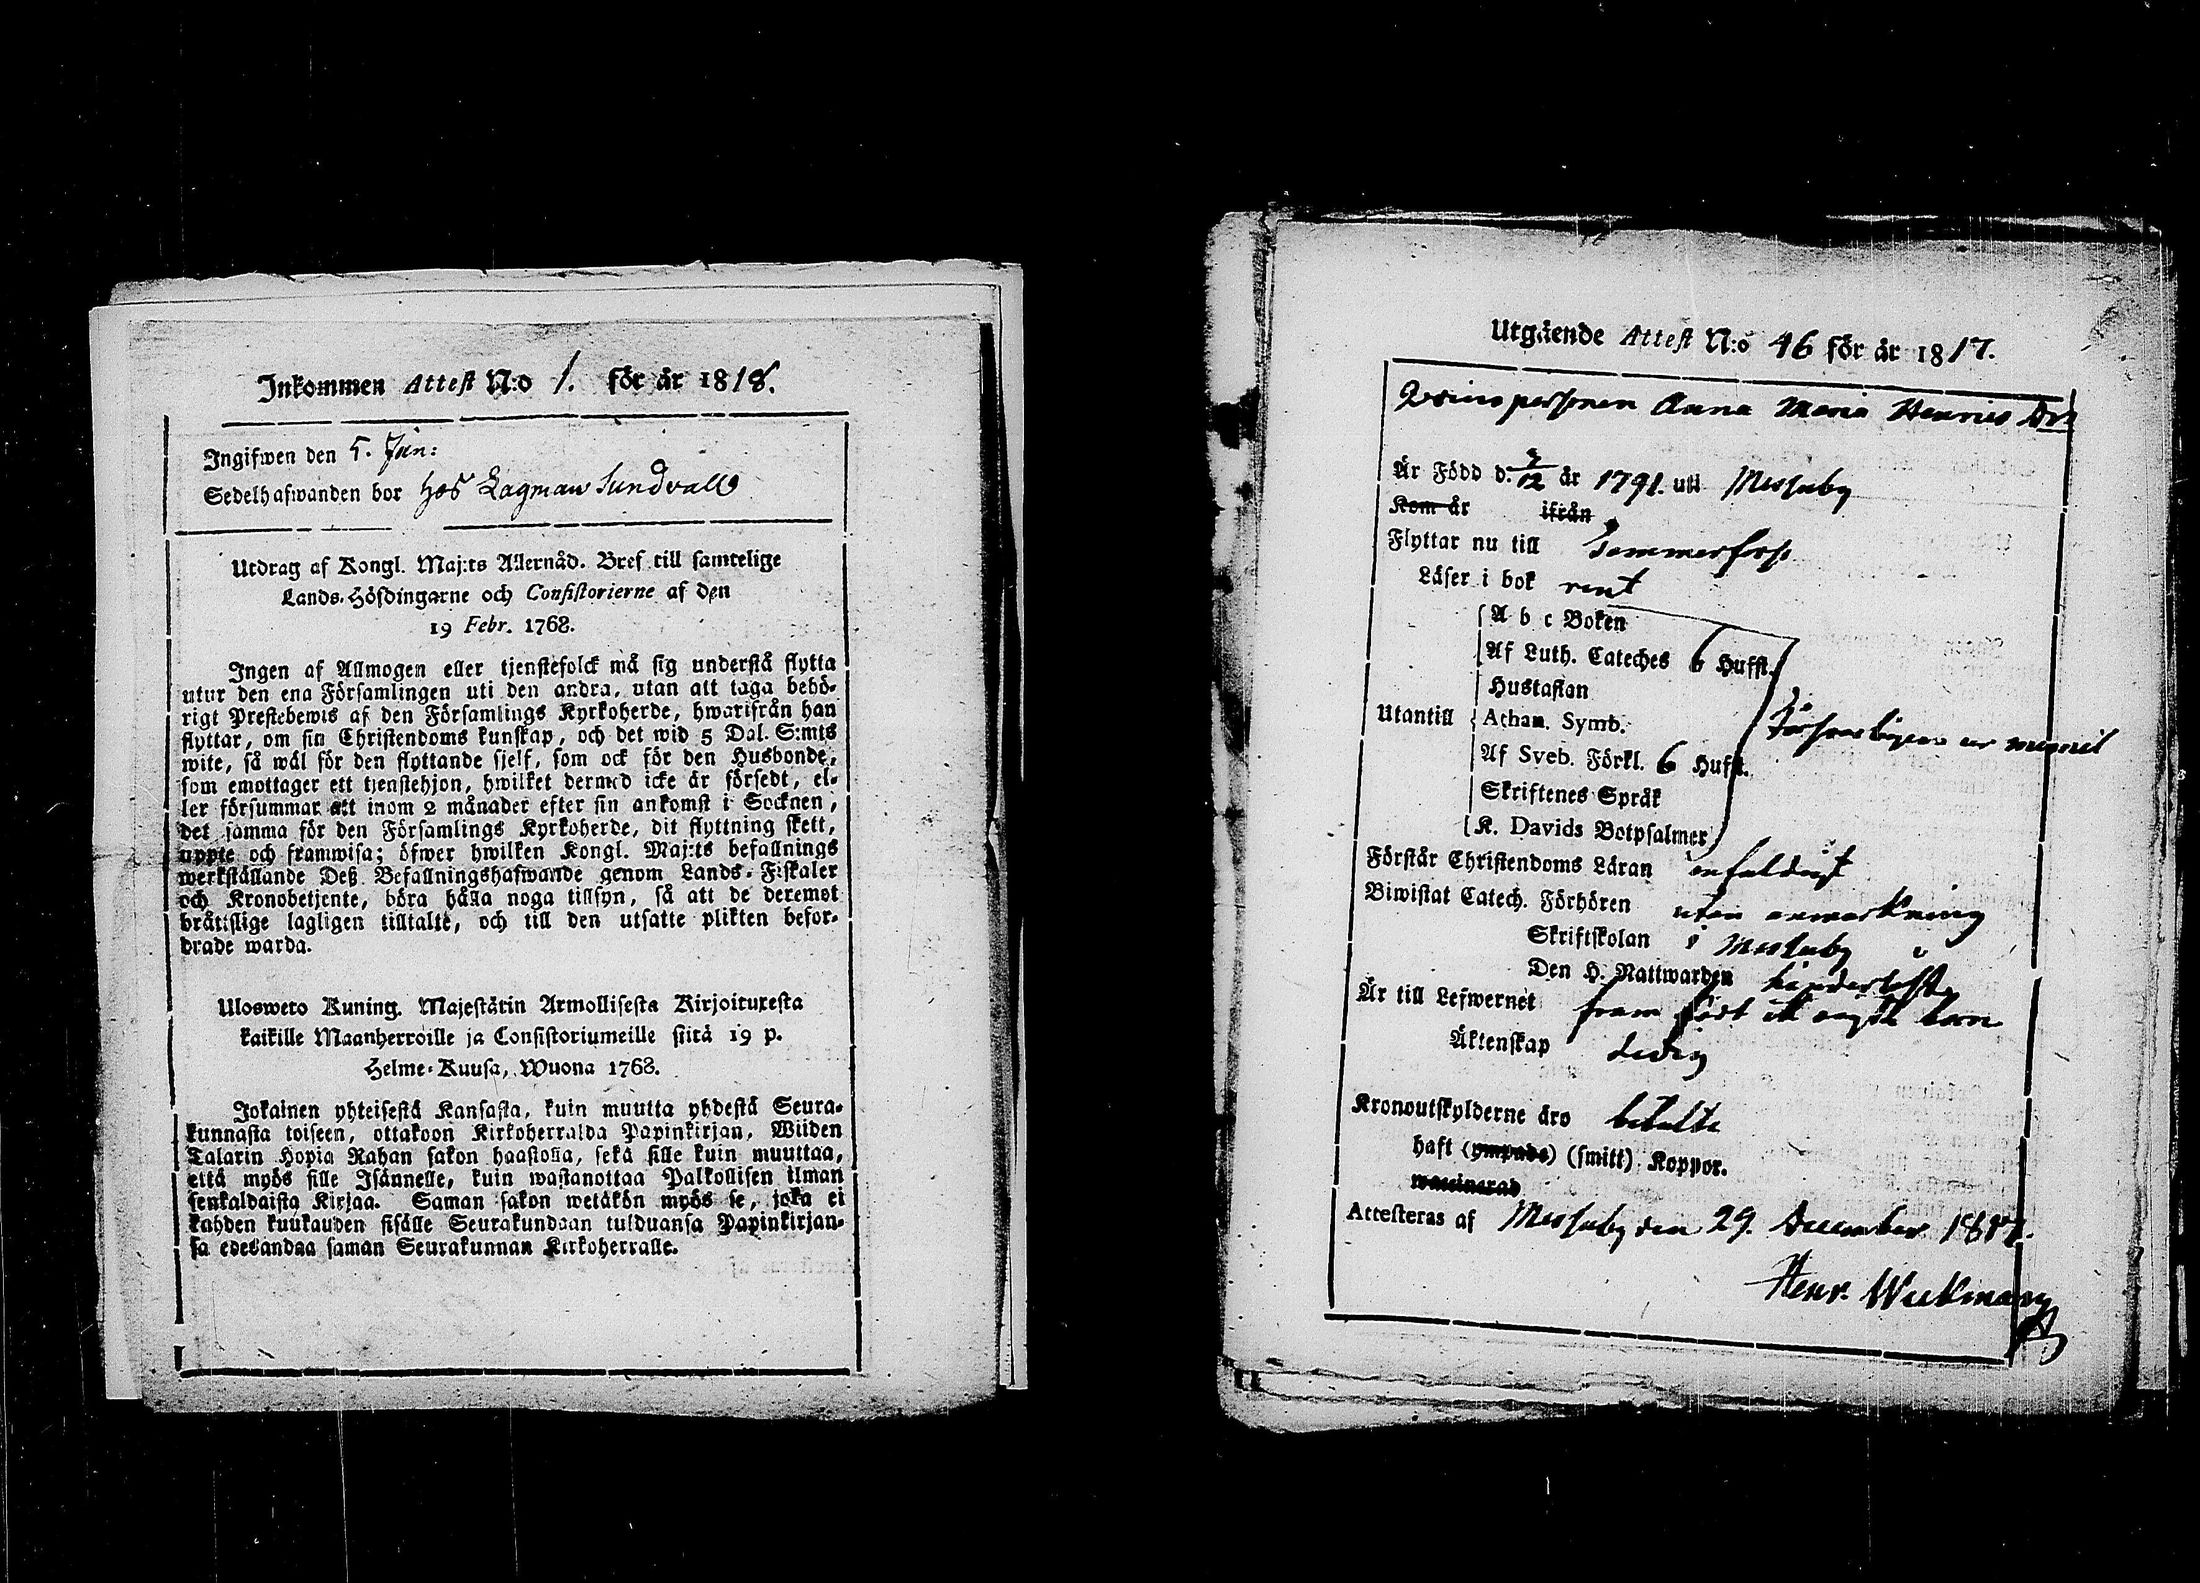 Inkommen Attest N:o 1. för år 1818.
Ingifwen den 5. Jan:
Sedelhafwanden bor hos Lagman Sundvall
Utdrag af Kongl. Maj:ts Allernåd. Bref till samtelige
Lands-Höfdingarne och Consistorierne af den
19 Febr. 1768.
Ingen af Allmogen eller tjenstefolck må sig understå flytta
utur den ena Församlingen uti den andra, utan att taga behö-
rigt Prestebewis af den Församlings Kyrkoherde, hwarifrån han
flyttar, om sin Christendoms kunskap, och det wid 5 Dal. S:mts
wite, så wäl för den flyttande sjelf, som ock för den Husbonde,
som emottager ett tjenstehjon, hwilket dermed icke är försedt, el-
ler försummar att inom 2 månader efter sin ankomst i Socknen,
det samma för den Församlings Kyrkoherde, dit flyttning skett,
uppte och framwisa; öfwer hwilken Kongl. Maj:ts befallnings
werkställande Deß Befallningshafwande genom Lands-Fiskaler
och Kronobetjente, böra hålla noga tillsyn, så att de deremot
bråttslige lagligen tilltalte, och till den utsatte plikten befor-
drade warda.
Ulosweto Kuning. Majestätin Armollisesta Kirjoituxesta
kaikille Maanherroille ja Consistoriumeille siitä 19 p.
Helme-Kuusa, Wuona 1768.
Jokainen yhteisestä Kansasta, kuin muutta yhdestä Seura-
kunnasta toiseen, ottakoon Kirkoherralda Papinkirjan, Wiiden
Talarin Hopia Rahan sakon haastolla, sekä sille kuin muuttaa,
että myös sille Isännelle, kuin wastanottaa Palkollisen ilman
senkaldaista Kirjaa. Saman sakon wetäkön myös se, joka ei
kahden kuukauden sisälle Seurakundaan tulduansa Papinkirjan-
sa edesandaa saman Seurakunnan Kirkoherralle.
Utgäende Attest N:o 46 för år 1817.
Qvinspersonen Anna Maria Henrics Dr
Är Född d. 7/12 år 1791. uti Messuby
Kom år ifrån
Flyttar nu till Tammerfors
Läser i bok rent
A b c Boken
Af Luth. Cateches 6 Hufst.
Hustaflan
Utantill Athan. Symb.
Af Sveb. Förkl. 6 Hufst.
Skriftenes Språk
K. Davids Botpsalmer
Förstår Christendoms Läran enfaldigt
Biwistat Catech. Förhören utan anmärkning
Skriftskolan i Messuby
Den H. Nattwarden
Är till Lefwernet fram födt ett oägta barn
Äktenskap ledig
Kronoutskylderne äro betalte
haft (ympade) (smitt) Koppor.
waccinerad
Attesteras af Messuby den 29. December 1817.
Henr. Wickman